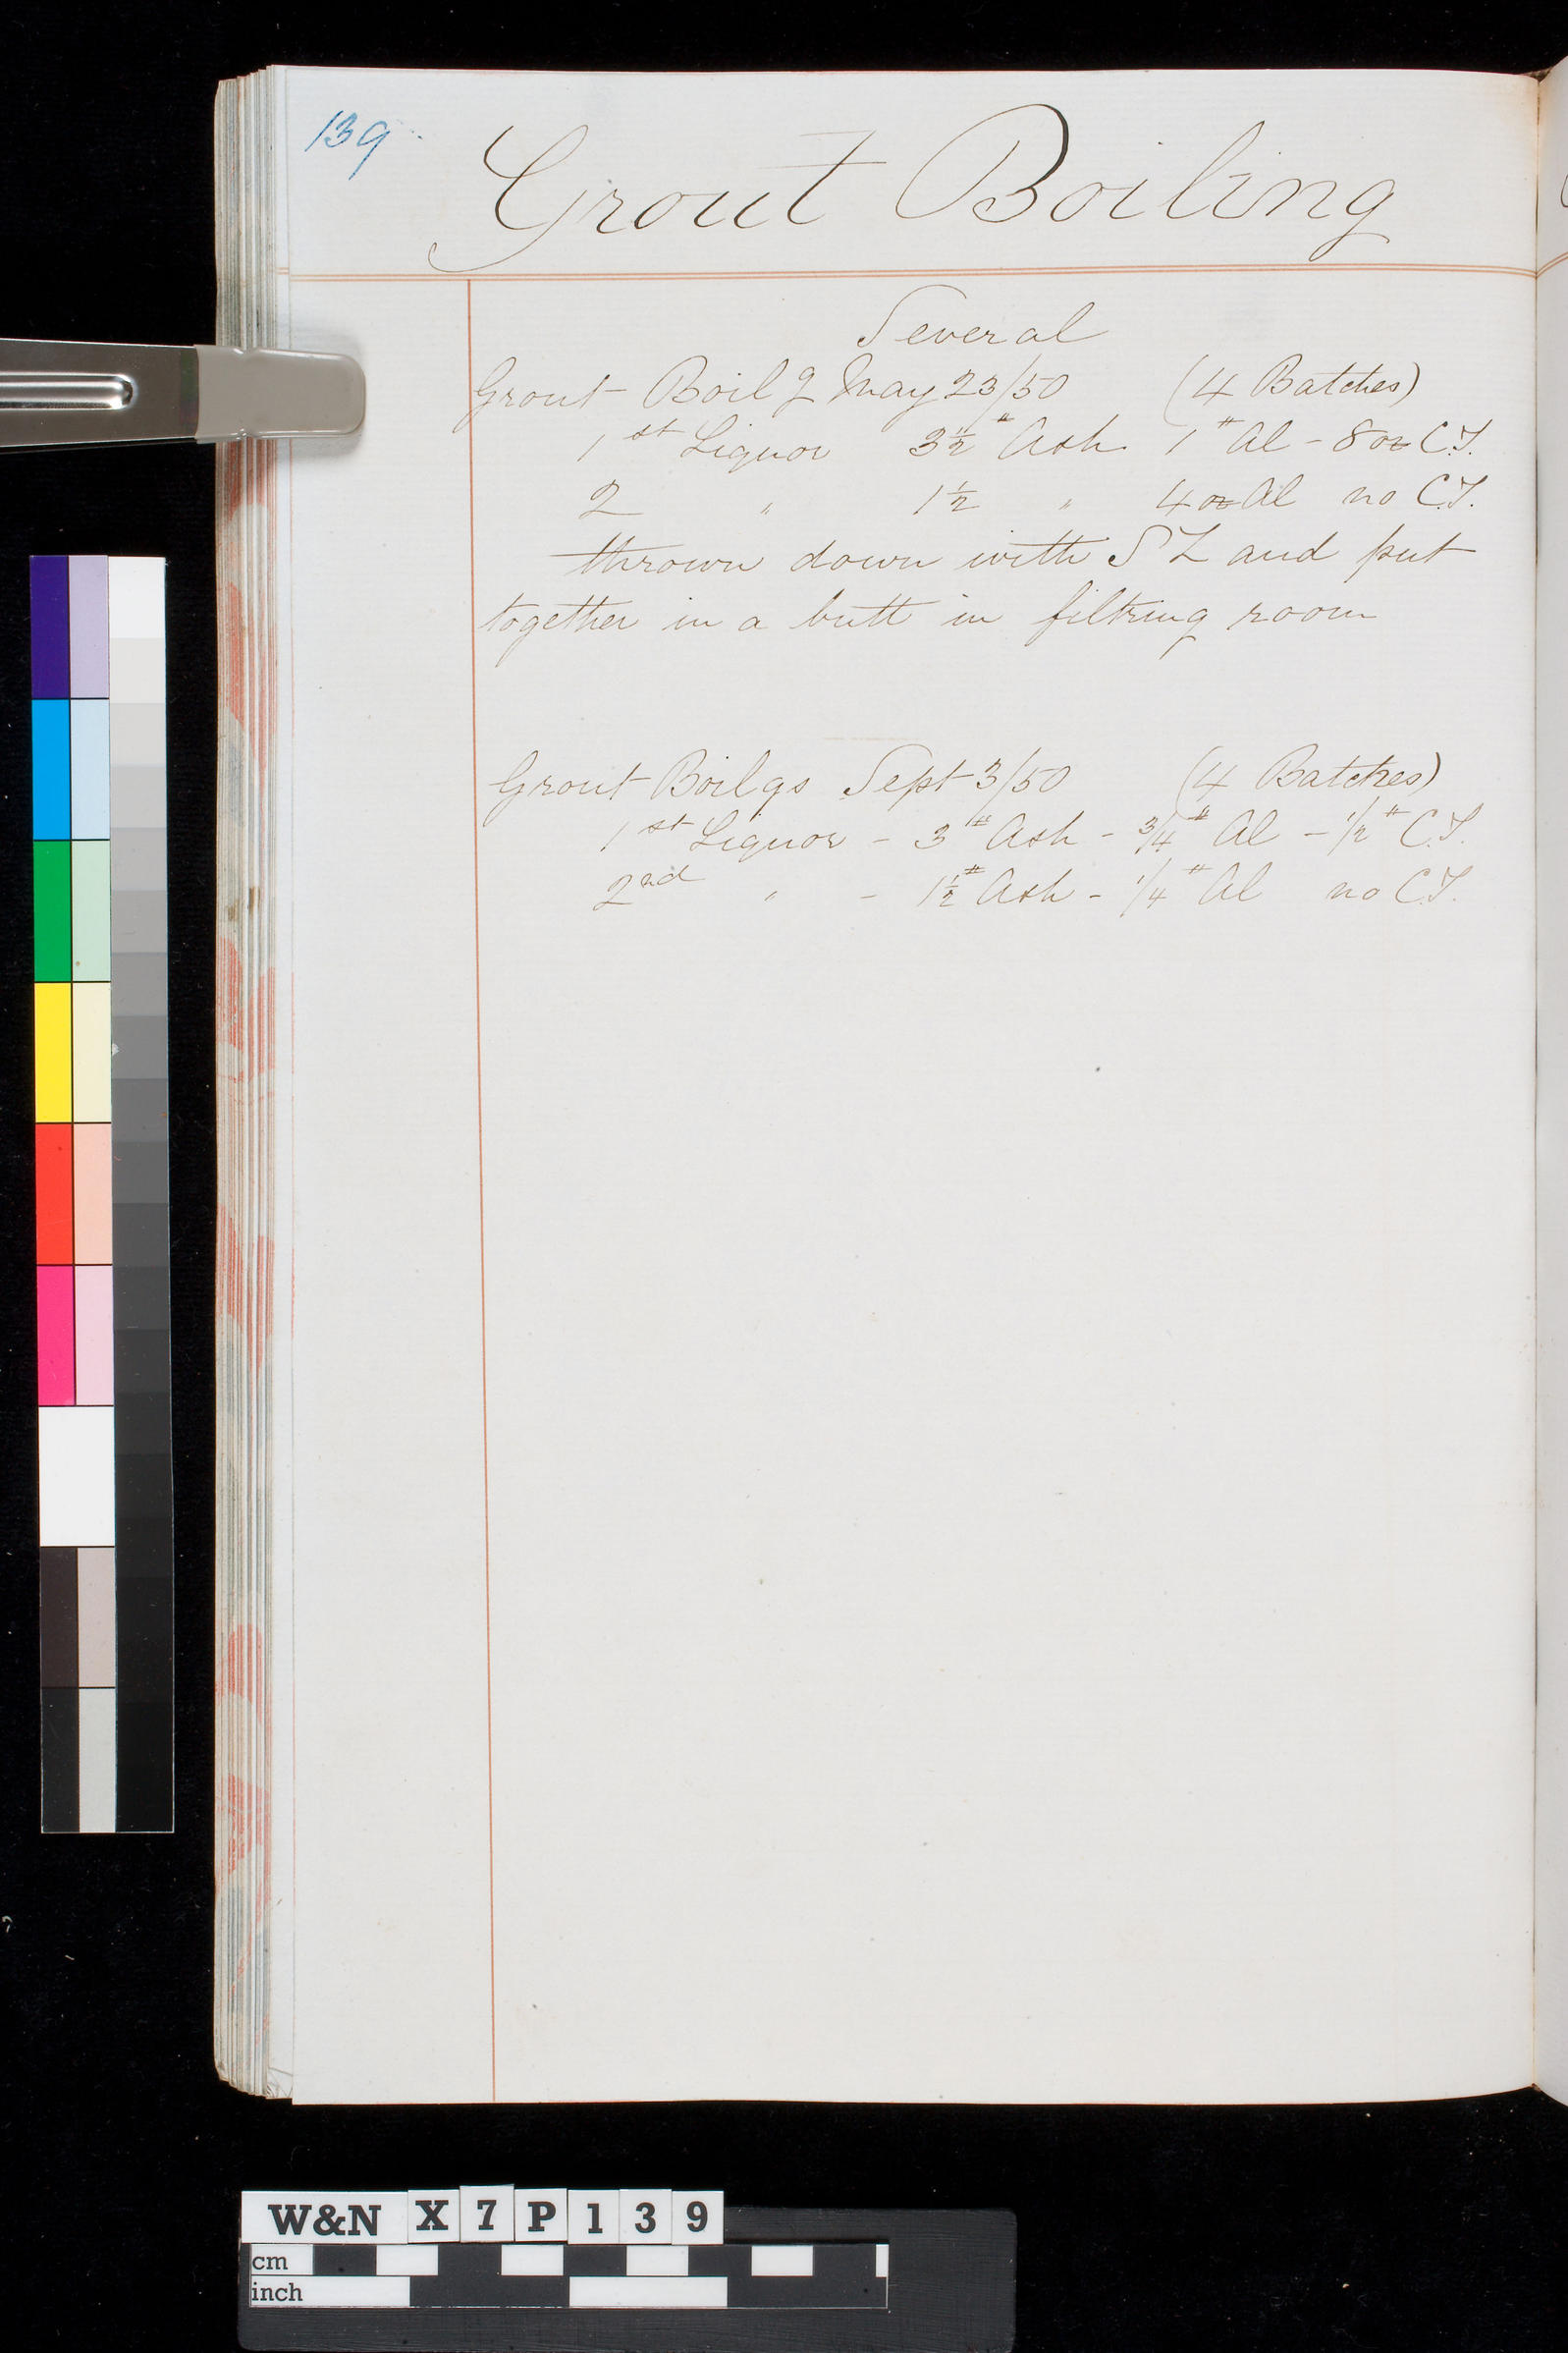 139
Grout Boiling
Several
Grout Boilg May 23/50 (4 Batches)
1st Liquor 3½# Ash 1# Al - 8 oz C.T.
2 " 1½ " 4 oz Al no C.T.
thrown down with S L and put
together in a butt in filtring room
Grout Boilgs Sept 3/50 (4 Batches)
1st Liquor - 3# Ash - ¾# Al - ½# C.T.
2nd " - 1½# Ash - ¼# Al no C.T.
W&N X7P139
cm
inch